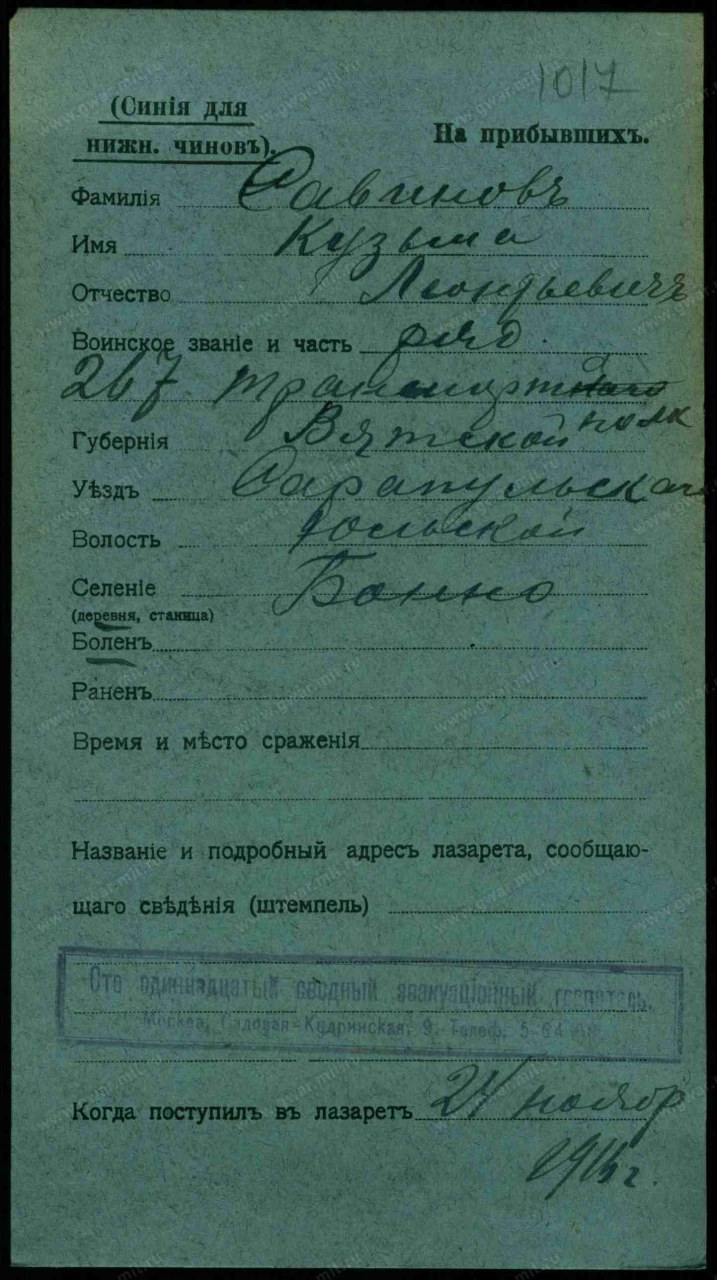 1017
(Синія для
нижн. чиновъ).
На прибывшихъ.
Фамилія Савиновъ
Имя Кузьма
Отчество Леонтьевичъ
Воинское званіе и часть ряд.
267
полк
Губернія Вятской
Уѣздъ Сарапульскаго
Волость
Селеніе
(деревня, станица)
Боленъ
Раненъ
Время и мѣсто сраженія
Названіе и подробный адресъ лазарета, сообщаю-
щаго свѣдѣнія (штемпель)
Сто одиннадцатый сводный эвакуаціонный госпиталь.
Москва, Садовая-Кудринская, 9. Телеф. 5-64
Когда поступилъ въ лазаретъ 24 ноябр